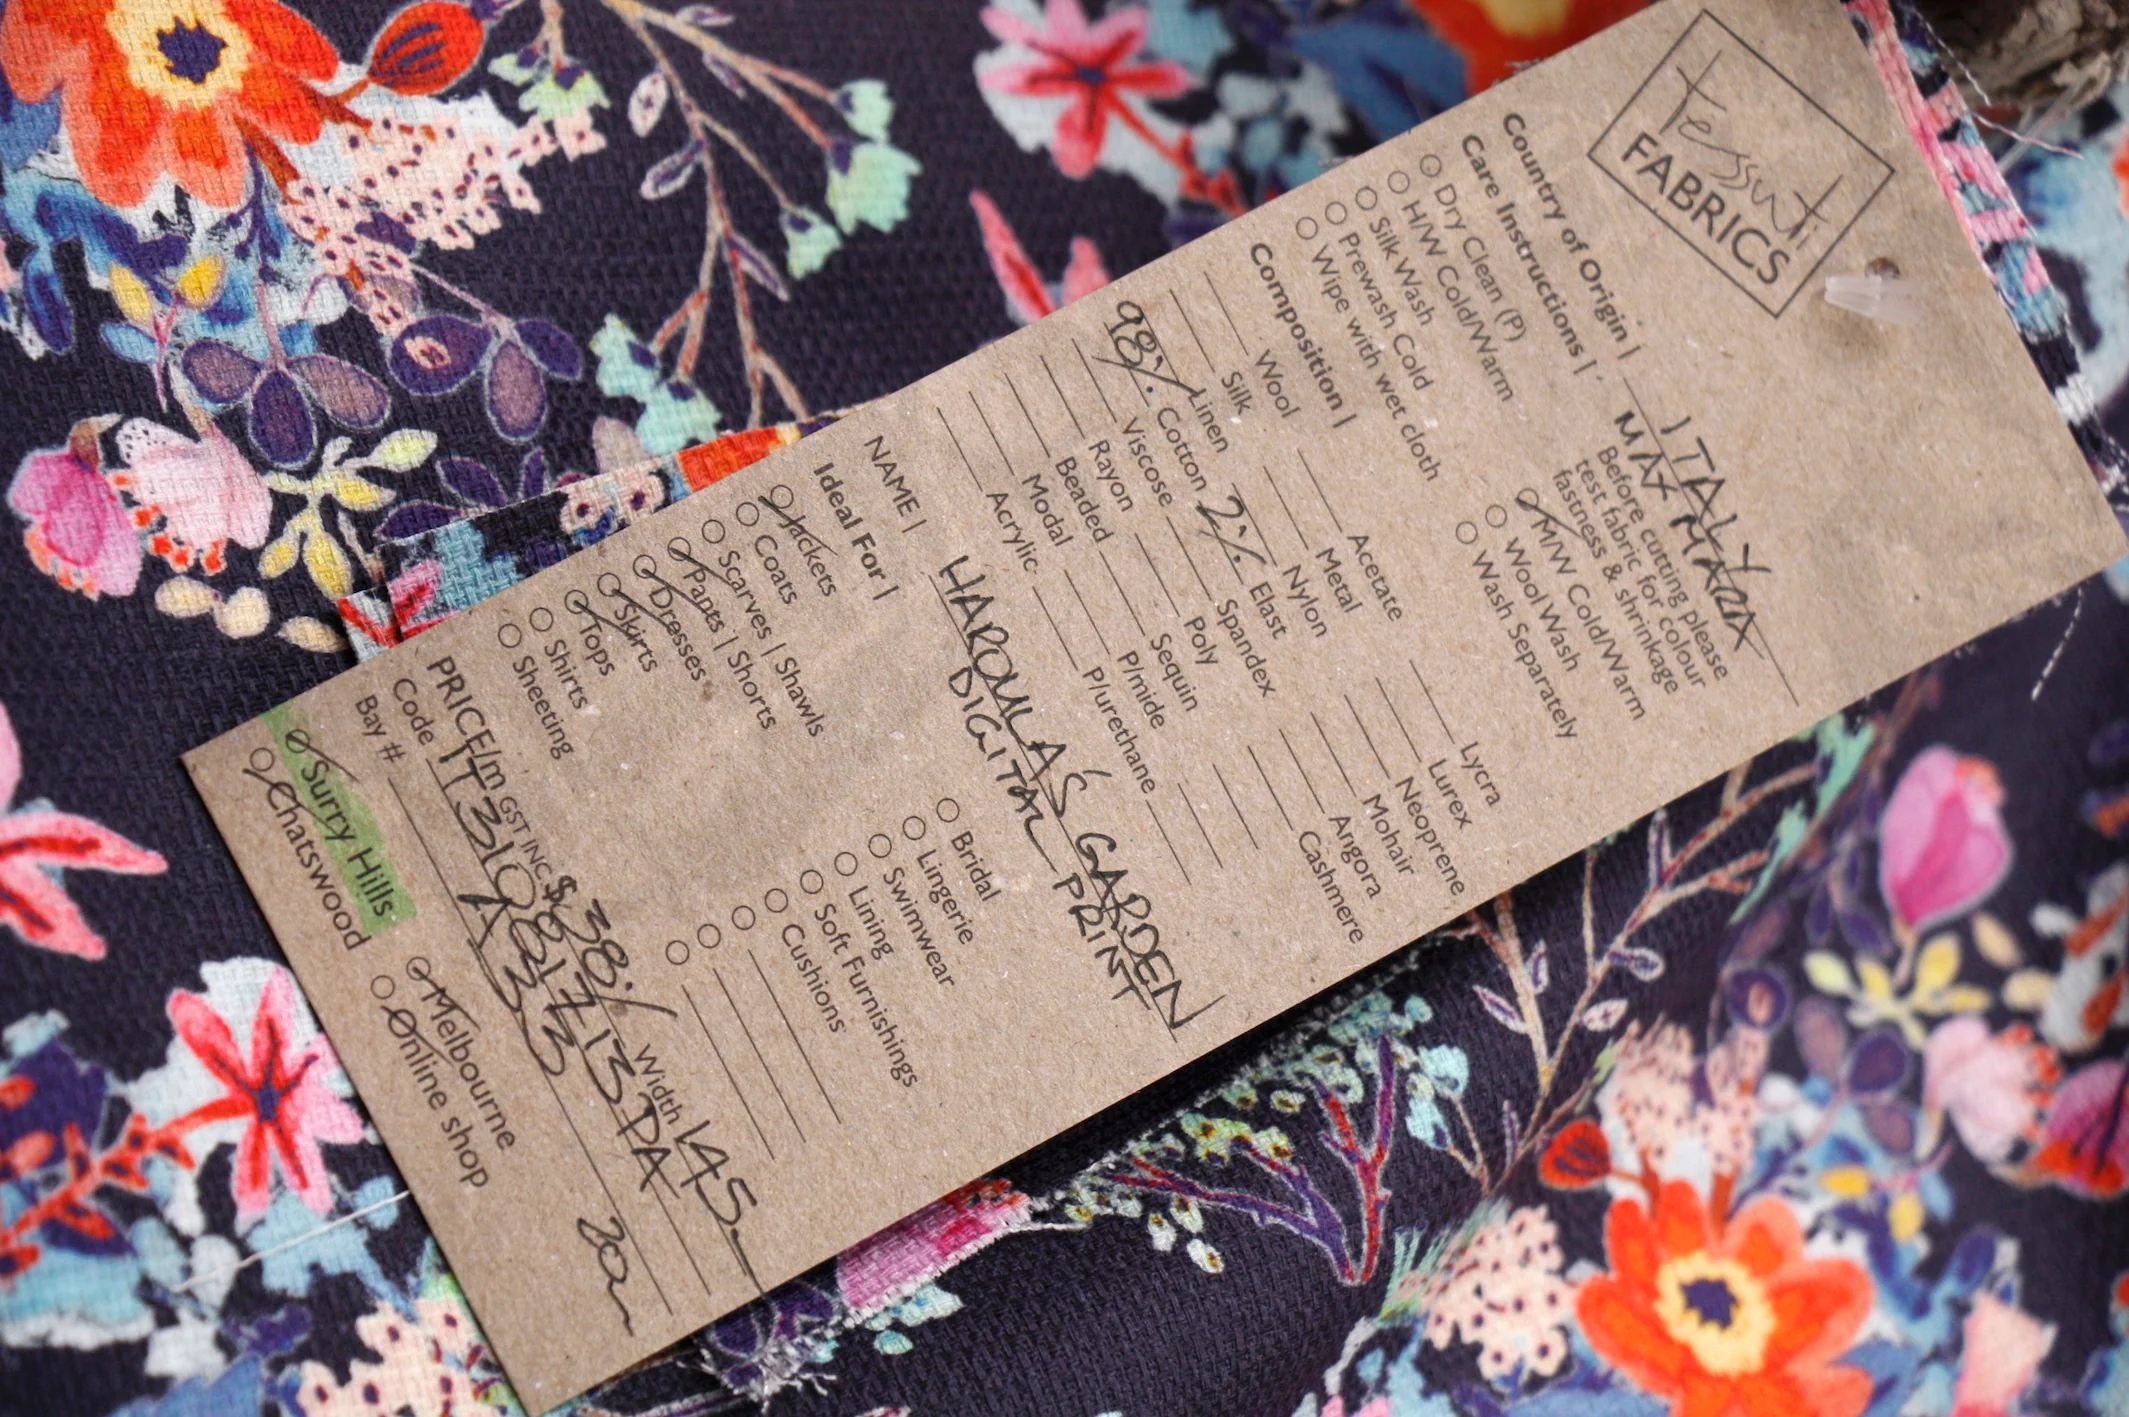 Tessuti
FABRICS
Country of Origin | ITALY
MAX MARA
Care Instructions | Before cutting please
test fabric for colour
fastness & shrinkage
Dry Clean (P)
H/W Cold/Warm
Silk Wash
Prewash Cold
Wipe with wet cloth
M/W Cold/Warm
Wool Wash
Wash Separately
Composition |
Wool
Silk
Linen
98% Cotton
Viscose
Rayon
Beaded
Modal
Acrylic
Acetate
Metal
Nylon
2% Elast
Spandex
Poly
Sequin
P/mide
P/urethane
Lycra
Lurex
Neoprene
Mohair
Angora
Cashmere
NAME | HAROULA'S GARDEN
DIGITAL PRINT
Ideal For |
Jackets
Coats
Scarves | Shawls
Pants | Shorts
Dresses
Skirts
Tops
Shirts
Sheeting
Bridal
Lingerie
Swimwear
Lining
Soft Furnishings
Cushions
PRICE/m GST INC $38./ Width 145.
Code IT31081713DA
Bay # A33
Surry Hills
Chatswood
Melbourne
Online shop